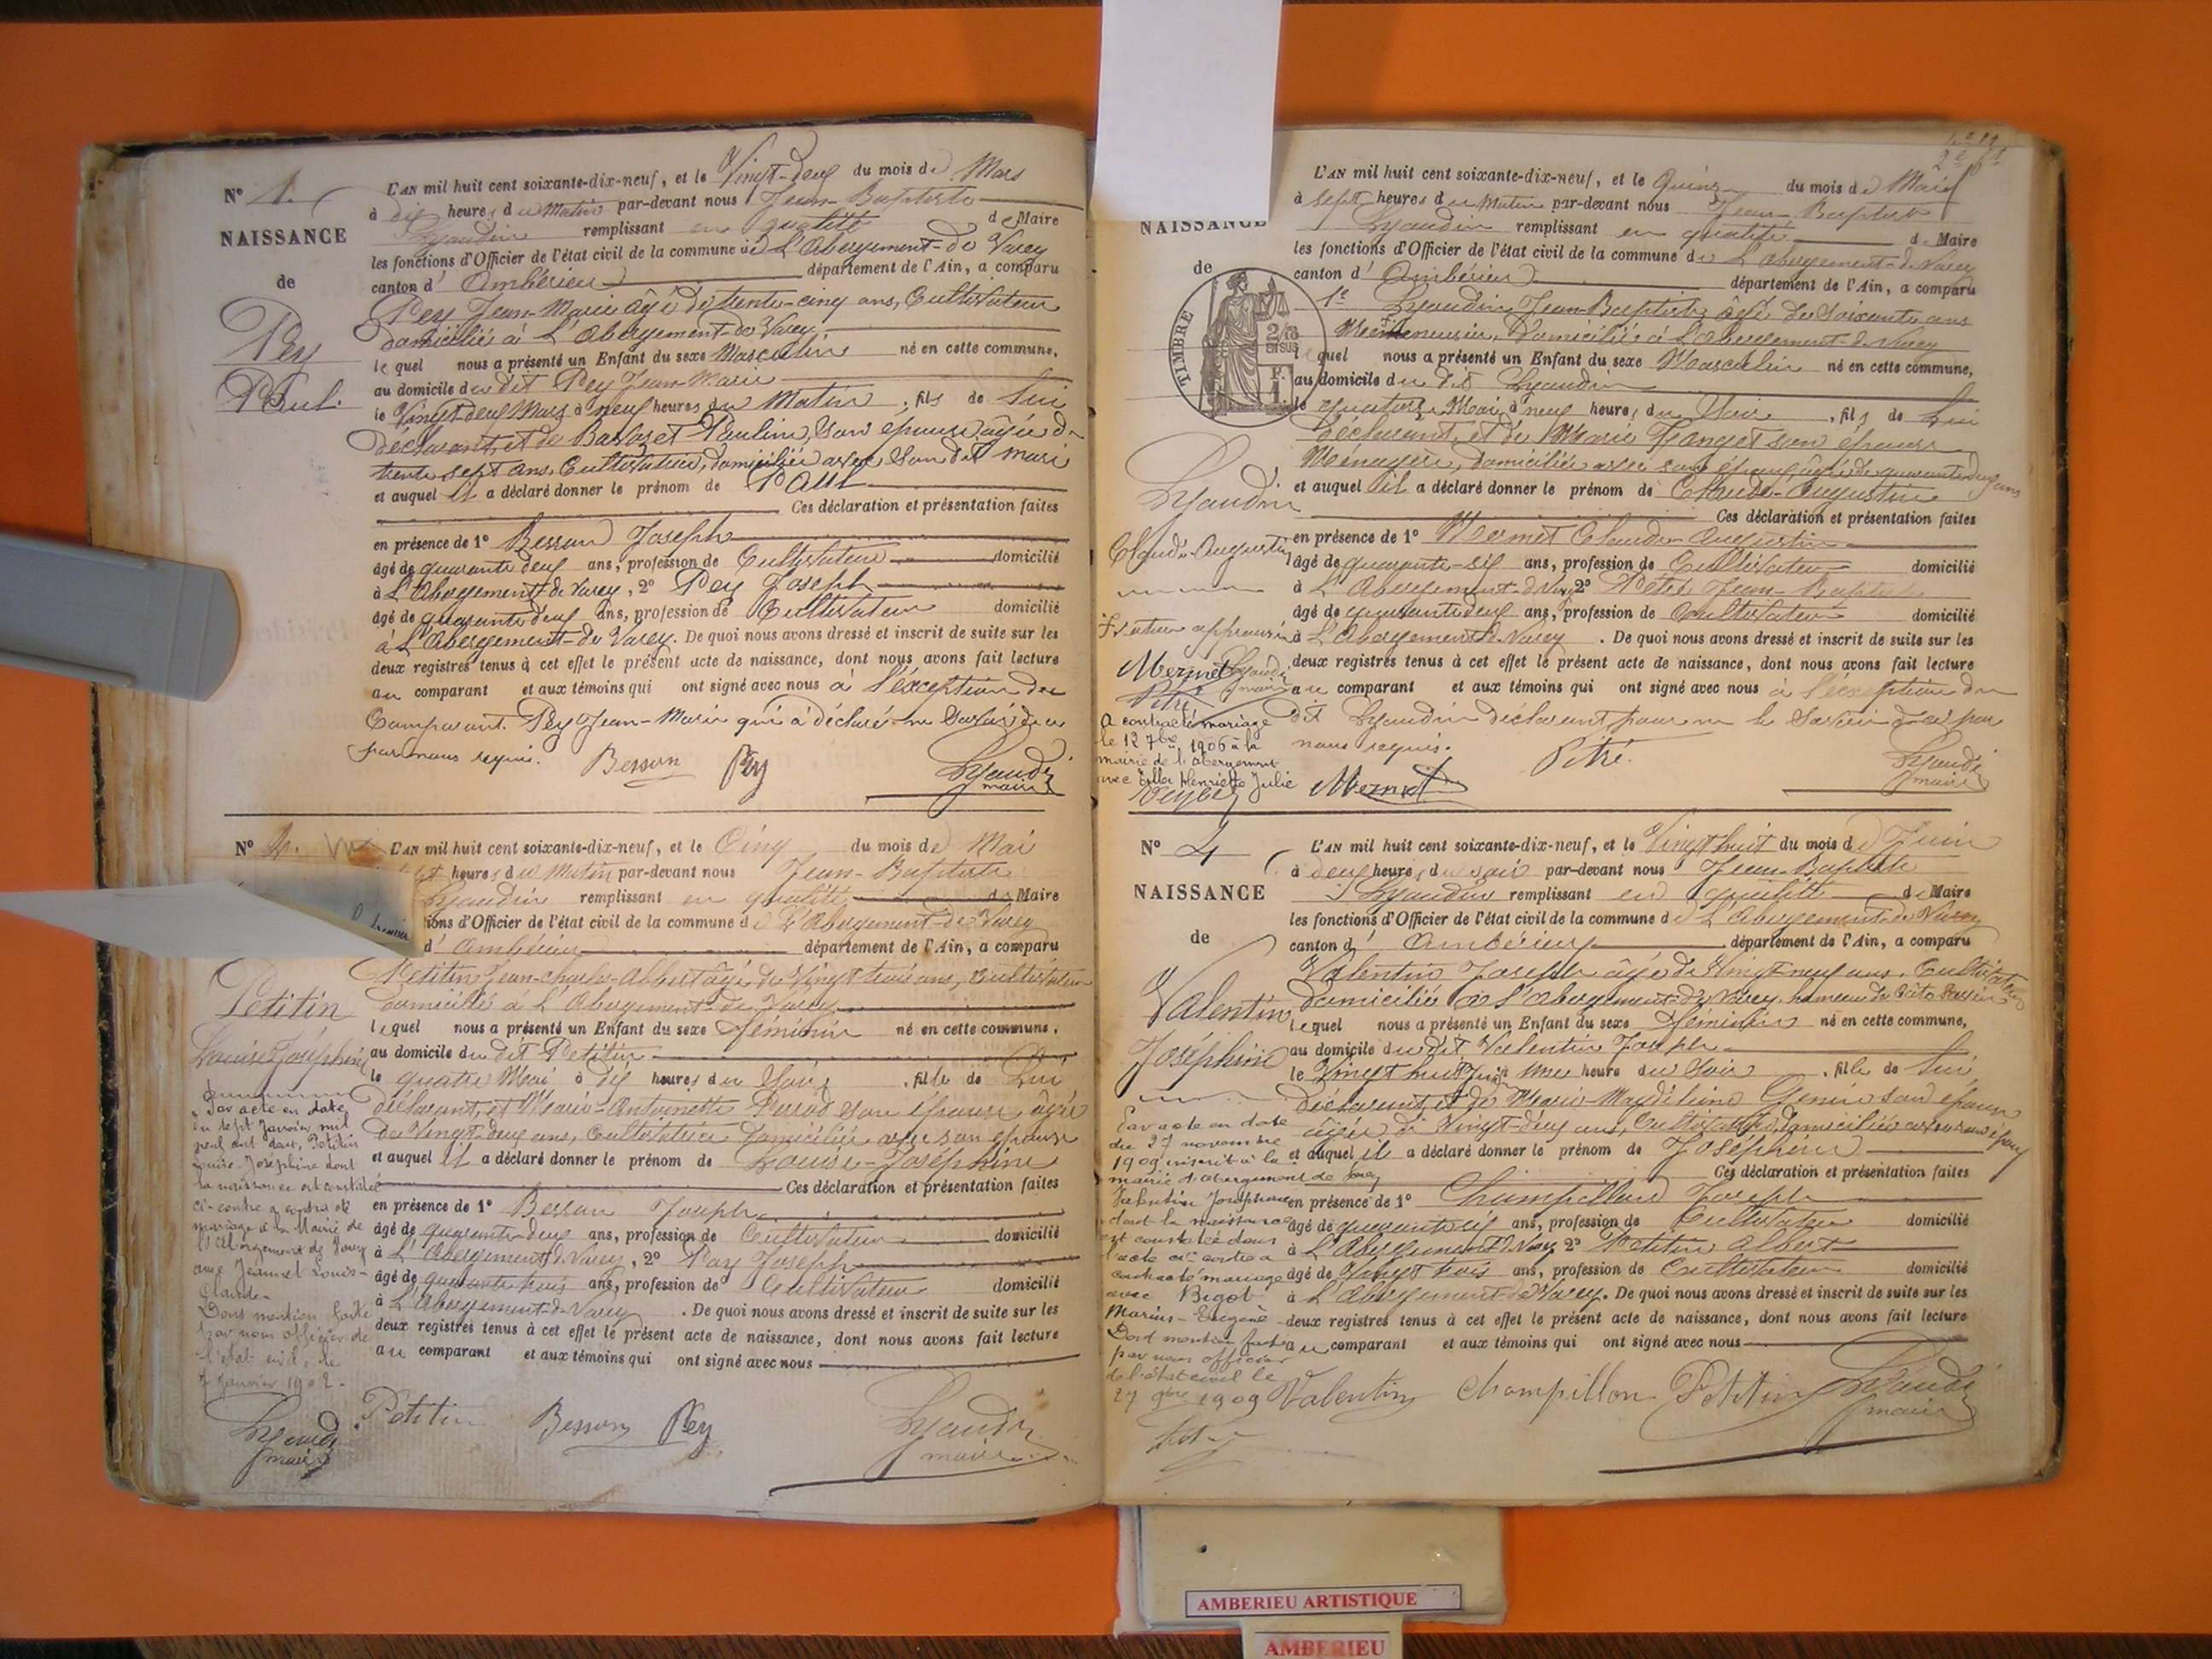 N° 1.
NAISSANCE
de
Pey
Paul.
L'AN mil huit cent soixante-dix-neuf, et le Vingt-deux du mois de Mars
à dix heures du Matin par-devant nous Jean-Baptiste
Lyaudin remplissant en qualité de Maire
les fonctions d'Officier de l'état civil de la commune de L'Abergement-de Varey
canton d'Ambérieu département de l'Ain, a comparu
Pey Jean-Marie âgé de trente-cinq ans, Cultivateur
domicilié à L'Abergement-de Varey,
lequel nous a présenté un Enfant du sexe Masculin né en cette commune,
au domicile du dit Pey Jean-Marie
le Vingt deux Mars à neuf heures du Matin, fils de lui
déclarant, et de Pauline, son épouse, âgée de
trente sept ans, Cultivatrice, domiciliée avec son dit mari
et auquel il a déclaré donner le prénom de Paul
Ces déclaration et présentation faites
en présence de 1° Besson Joseph
âgé de quarante deux ans, profession de Cultivateur domicilié
à L'Abergement de Varey, 2° Pey Joseph
âgé de quarante deux ans, profession de Cultivateur domicilié
à L'Abergement-de Varey. De quoi nous avons dressé et inscrit de suite sur les
deux registres tenus à cet effet le présent acte de naissance, dont nous avons fait lecture
au comparant et aux témoins qui ont signé avec nous à l'exception du
Comparant Pey Jean-Marie qui a déclaré ne savoir de ce
par nous requis.
Besson Pey Lyaudin
maire
N° 2.
L'AN mil huit cent soixante-dix-neuf, et le Cinq du mois de Mai
heures du Matin par-devant nous Jean-Baptiste
Lyaudin remplissant en qualité de Maire
ions d'Officier de l'état civil de la commune de L'Abergement-de Varey
d'Ambérieu département de l'Ain, a comparu
Petitin Jean-Charles-Albert âgé de Vingt trois ans, Cultivateur
domicilié à L'Abergement-de Varey
lequel nous a présenté un Enfant du sexe féminin né en cette commune,
au domicile du dit Petitin
le quatre Mai à dix heures du Soir, fille de Lui
déclarant, et Marie-Antoinette son épouse, âgée
de Vingt-deux ans, Cultivatrice domiciliée avec son époux
et auquel il a déclaré donner le prénom de Louise-Joséphine
Ces déclaration et présentation faites
en présence de 1° Besson Joseph
âgé de quarante deux ans, profession de Cultivateur domicilié
à L'Abergement de Varey, 2° Pey Joseph
âgé de quarante trois ans, profession de Cultivateur domicilié
à L'Abergement-de Varey. De quoi nous avons dressé et inscrit de suite sur les
deux registres tenus à cet effet le présent acte de naissance, dont nous avons fait lecture
au comparant et aux témoins qui ont signé avec nous
Petitin
Louise Joséphine
Par acte en date
du sept Janvier mil
neuf cent deux, Petitin
Louise-Joséphine dont
la naissance est constatée
ci-contre a contracté
mariage à la Mairie de
l'Abergement de Varey
avec Jeannet Louis-
Claude.
Dont mention faite
par nous officier de
l'état civil, le
7 Janvier 1902.
Lyaudin
maire
Petitin Besson Pey Lyaudin
maire
NAISSANCE
de
TIMBRE
2/10
EN SUS
Lyaudin
Claude-Augustin
L'AN mil huit cent soixante-dix-neuf, et le Quinze du mois de Mai
à sept heures du Matin par-devant nous Jean-Baptiste
Lyaudin remplissant en qualité de Maire
les fonctions d'Officier de l'état civil de la commune de L'Abergement-de Varey
canton d'Ambérieu département de l'Ain, a comparu
Lyaudin Jean-Baptiste âgé de Soixante ans
domicilié à L'Abergement-de Varey
lequel nous a présenté un Enfant du sexe Masculin né en cette commune,
au domicile du dit Lyaudin
le quatorze Mai à neuf heures du Soir, fils de Lui
déclarant, et de Marie son épouse
Ménagère, domiciliée avec son époux, âgée de quarante deux ans
et auquel il a déclaré donner le prénom de Claude-Augustin
Ces déclaration et présentation faites
en présence de 1° Mermet Claude-Augustin
âgé de quarante-six ans, profession de Cultivateur domicilié
à L'Abergement-de Varey 2° Pitre Jean-Baptiste
âgé de quarante deux ans, profession de Cultivateur domicilié
à L'Abergement de Varey. De quoi nous avons dressé et inscrit de suite sur les
deux registres tenus à cet effet le présent acte de naissance, dont nous avons fait lecture
au comparant et aux témoins qui ont signé avec nous à l'exception du
dit Lyaudin déclarant pour ne le Savoir de ce par
nous requis.
Mermet Pitre Lyaudin
maire
A contracté mariage
le 12 7bre 1906 à la
mairie de l'Abergement
avec Henriette Julie
N° 4
NAISSANCE
de
Valentin
Joséphine
L'AN mil huit cent soixante-dix-neuf, et le Vingt huit du mois de Juin
à deux heures du soir par-devant nous Jean-Baptiste
Lyaudin remplissant en qualité de Maire
les fonctions d'Officier de l'état civil de la commune de L'Abergement-de Varey
canton d'Ambérieu département de l'Ain, a comparu
Valentin Joseph âgé de Vingt neuf ans, Cultivateur
domicilié à L'Abergement-de Varey, hameau de
lequel nous a présenté un Enfant du sexe féminin né en cette commune,
au domicile du dit Valentin Joseph
le Vingt huit Juin à une heure du Soir, fille de lui
déclarant, et de Marie-Magdeleine son épouse
âgée de Vingt-deux ans, Cultivatrice, domiciliée avec son époux
et auquel il a déclaré donner le prénom de Joséphine
Ces déclaration et présentation faites
en présence de 1° Joseph
âgé de quarante six ans, profession de Cultivateur domicilié
à L'Abergement de Varey 2° Petitin Albert
âgé de Vingt trois ans, profession de Cultivateur domicilié
à L'Abergement de Varey. De quoi nous avons dressé et inscrit de suite sur les
deux registres tenus à cet effet le présent acte de naissance, dont nous avons fait lecture
au comparant et aux témoins qui ont signé avec nous
Par acte en date
du 27 novembre
1909 inscrit à la
mairie d'Abergement de Varey
Valentin Joséphine
dont la naissance
est constatée dans
l'acte ci-contre a
contracté mariage
avec Bigot
Marius-Eugène
Dont mention faite
par nous officier
de l'état civil le
27 9bre 1909
Valentin Champillon Petitin Lyaudin
maire
AMBERIEU ARTISTIQUE
AMBERIEU